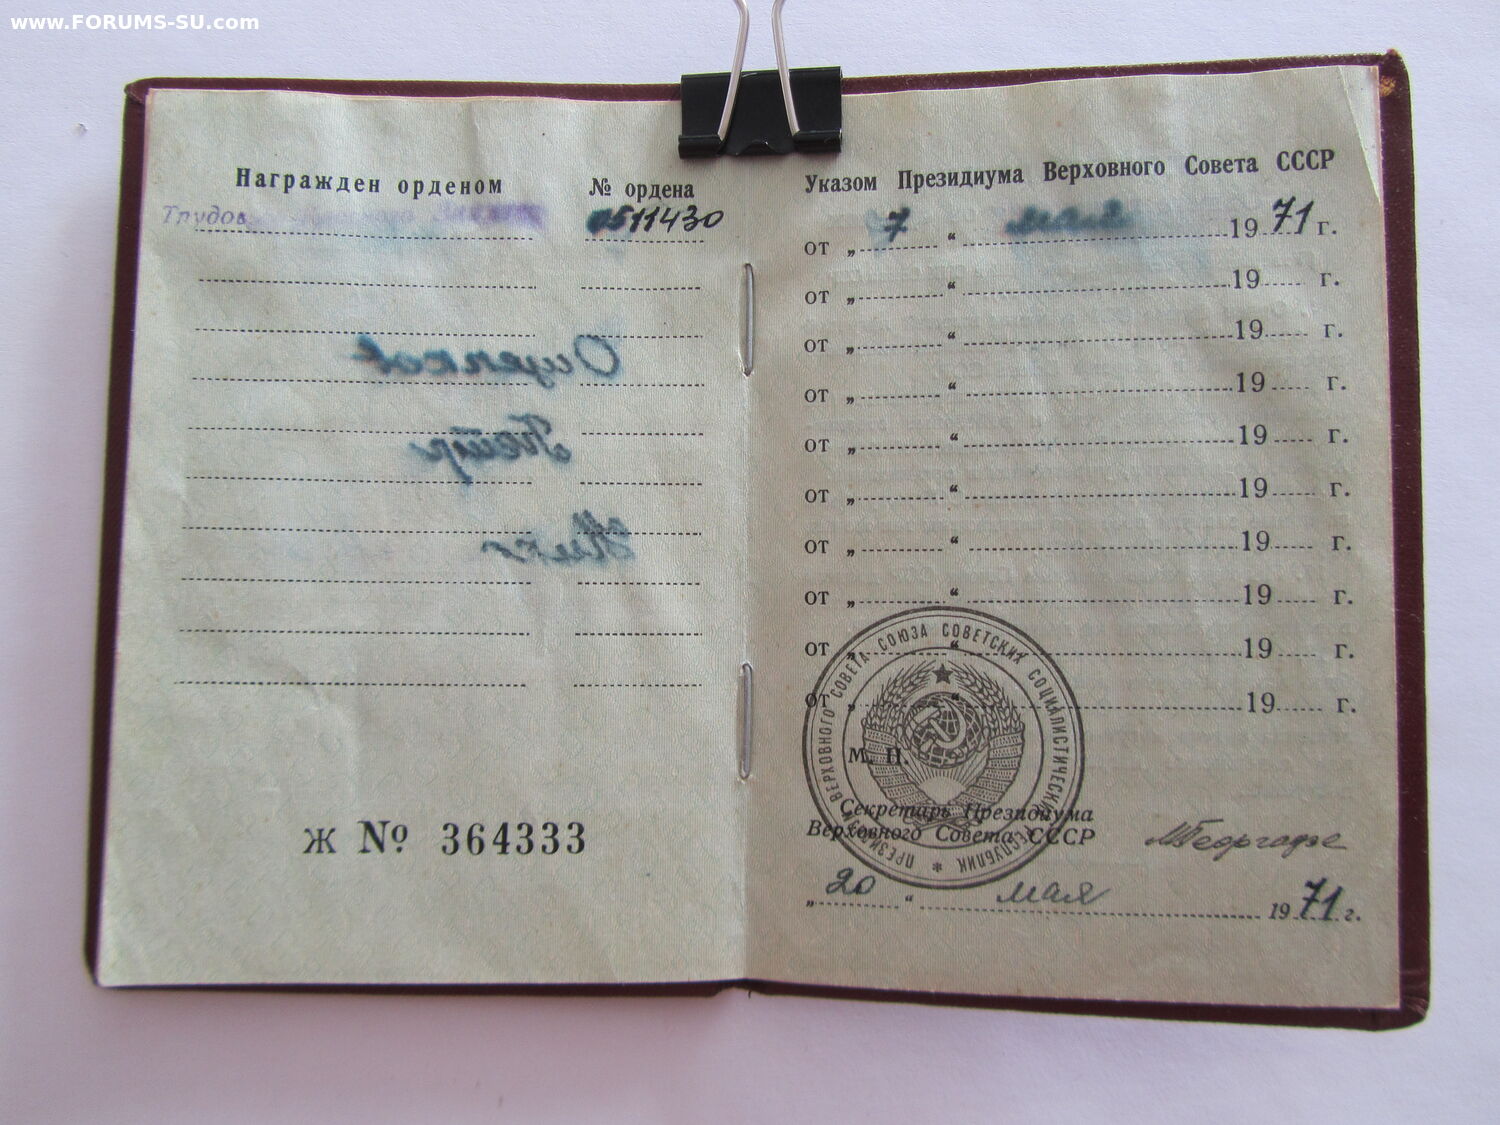 www.FORUMS-SU.com
Награжден орденом
№ ордена
Трудов
511430
Ж № 364333
Указом Президиума Верховного Совета СССР
от „ 7 “ мая 1971 г.
от „ “ 19 г.
от „ “ 19 г.
от „ “ 19 г.
от „ “ 19 г.
от „ “ 19 г.
от „ “ 19 г.
от „ “ 19 г.
от „ “ 19 г.
от „ “ 19 г.
М. П.
Секретарь Президиума
Верховного Совета СССР
МГеоргадзе
„ 20 “ мая 1971 г.
ПРЕЗИДИУМ ВЕРХОВНОГО СОВЕТА СОЮЗА СОВЕТСКИХ СОЦИАЛИСТИЧЕСКИХ РЕСПУБЛИК *